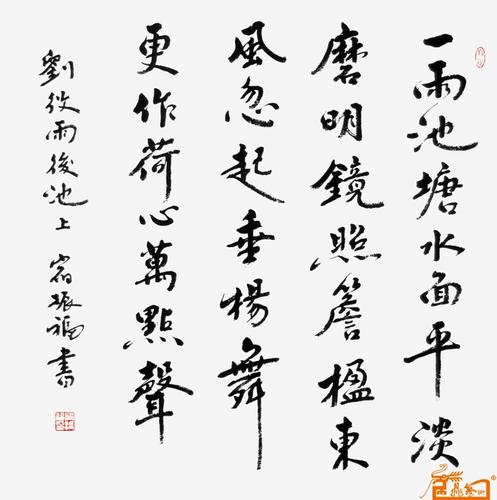 一雨池塘水面平淡
磨明鏡照簷楹東
風忽起垂楊舞
更作荷心萬點聲
劉攽雨後池上 宿振福書